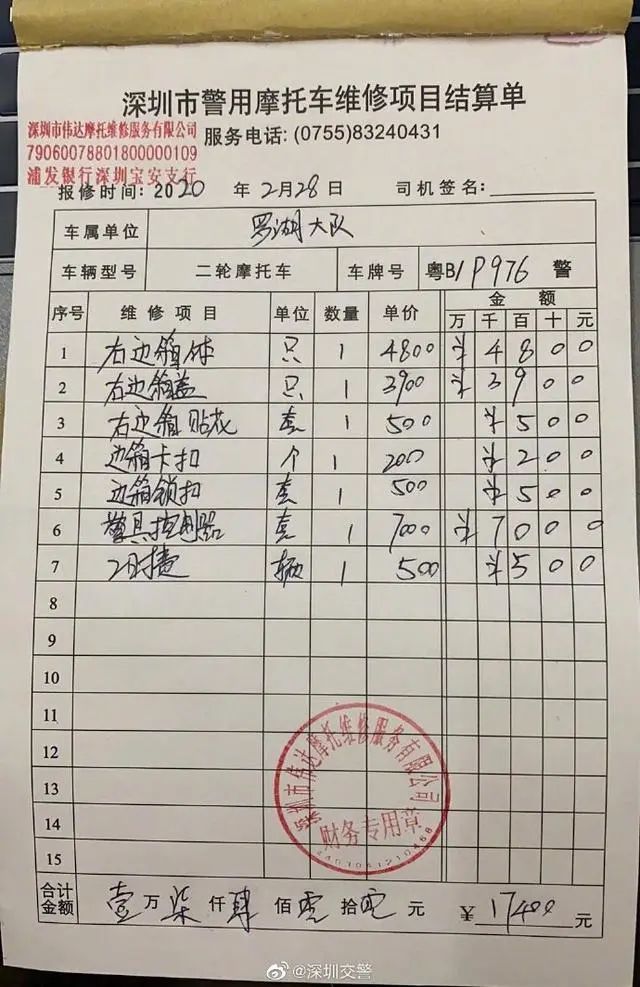 深圳市警用摩托车维修项目结算单
深圳市伟达摩托维修服务有限公司
服务电话:(0755)83240431
79060078801800000109
浦发银行深圳宝安支行
报修时间: 2020 年 2月28日 司机签名:
车属单位 罗湖大队
车辆型号 二轮摩托车 车牌号 粤B/P976 警
序号 维修项目 单位 数量 单价 金额
万 千 百 十 元
1 右边箱体 只 1 4800 ¥ 4 8 0 0
2 右边箱盖 只 1 3900 ¥ 3 9 0 0
3 右边箱贴花 套 1 500 ¥ 5 0 0
4 边箱卡扣 个 1 200 ¥ 2 0 0
5 边箱锁扣 套 1 500 ¥ 5 0 0
6 警具控制器 套 1 7000 ¥ 7 0 0 0
7 工时费 辆 1 500 ¥ 5 0 0
8
9
10
11
12
13
14
15
深圳市伟达摩托维修服务有限公司
财务专用章
合计金额 壹万柒仟肆佰零拾零元 ¥ 17400 元
@深圳交警